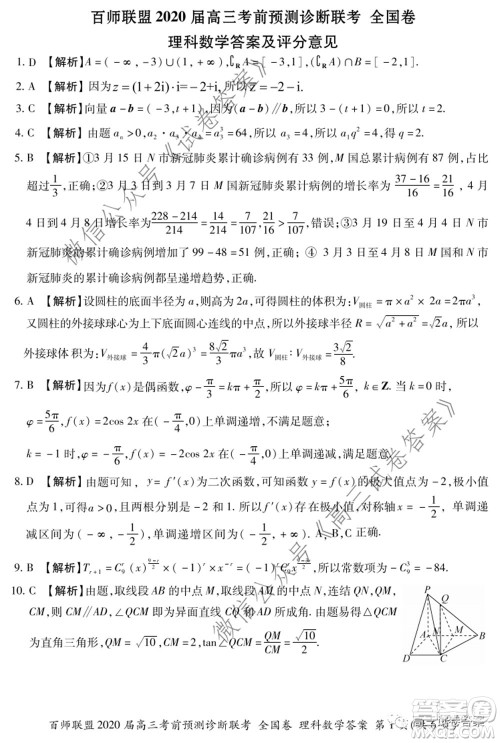 百师联盟2020届高三考前预测诊断联考 全国卷
理科数学答案及评分意见
1. D 【解析】A=(-∞,-3)∪(1,+∞),∁RA=[-3,1],(∁RA)∩B=[-2,1].
2. A 【解析】因为z=(1+2i)·i=-2+i,
3. C 【解析】向量a-b=(-3,t+1),因为(a-b)∥b,所以3-(t+1)=0,所以t=2.
4. C 【解析】由题aₙ>0,a₂·a₃·a₄=a₃³=64,所以a₃=4,所以a₁q²=4,得q=2.
5. B 【解析】①3月15日N市新冠肺炎累计确诊病例有33例,M国总累计确诊病例有87例,占比
超过1/3,正确;②3月19日至3月
(37-16)/16=21/16, 4月
4日的增长率为(228-214)/214=14/214=7/107,21/16>7/107,所以正确;③3月19日至4月4日N市
新冠肺炎的累计确诊病例增加了99-48=51例,正确;④3月M国和N市
新冠肺炎的累计确诊病例都呈递增趋势,正确.
6. A 【解析】设圆柱的底面半径为a,则高为2a,所以圆柱的体积为:V圆柱=π×a²×2a=2πa³,
又圆柱的外接球球心为上下底面圆心连线的中点,所以外接球半径R=√(a²+a²)=√2a,所以
外接球体积为:V外接球=4/3π(√2a)³=8√2/3πa³,故:V圆柱:V外接球=3√2/8.
7. B 【解析】因为f(x)是偶函数,φ-π/3=kπ+π/2,所以φ=kπ+5π/6, k∈Z.当k=0时,
φ=5π/6,f(x)=2cos2x在(-π/2,0)上单调递增,不满足题意;
k=-1时,φ=-π/6,f(x)=-2cos2x在(-π/2,0)上单调递减,满足题意.
8. D 【解析】由题可知, y=f′(x)为二次函数,可知函数y=f′(x)的
,可得a>0,且交点分别为-2和1.所以f(x)在x=1处存在极小值,对称轴x=-1/2,单调递
减区间为(-∞,-1/2),所以f′(x)在(-2,-1/2)上单调递减.故D正确.
9. B 【解析】
=-84.
10. C 【解析】由题,取线段AB的中点M,取线段PD的中点N,连结QN,
CM,则CM∥AD,∠QCM即为异面直线CQ与AD所成角.由题易得△QCM
为直角三角形,QM=√10,CM=2,tan∠QCM=QM/CM=√10/2.
P
Q
A
M
B
D
C
微信公众号《试卷答案》
微信公众号《高三试卷答案》
百师联盟2020届高三考前预测诊断联考 全国卷 理科数学答案 第1页